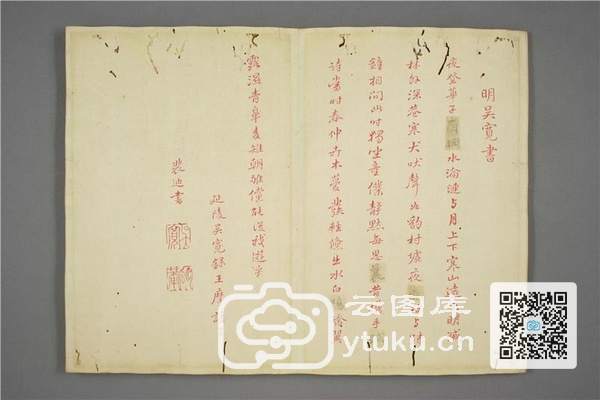 明吳寬書
夜登華子岡輞水淪漣与月上下寒山遠火明滅
林外深巷寒犬吠聲如豹村墟夜与
鐘相間此时獨坐童僕静默每思曩昔手
詩當时春仲卉木蔓發輕鯈出水白矯翼
露濕青皋麦雉朝雊儻能從我遊乎
延陵吳寬錄王摩詰
裴迪書
云图库
ytuku.cn